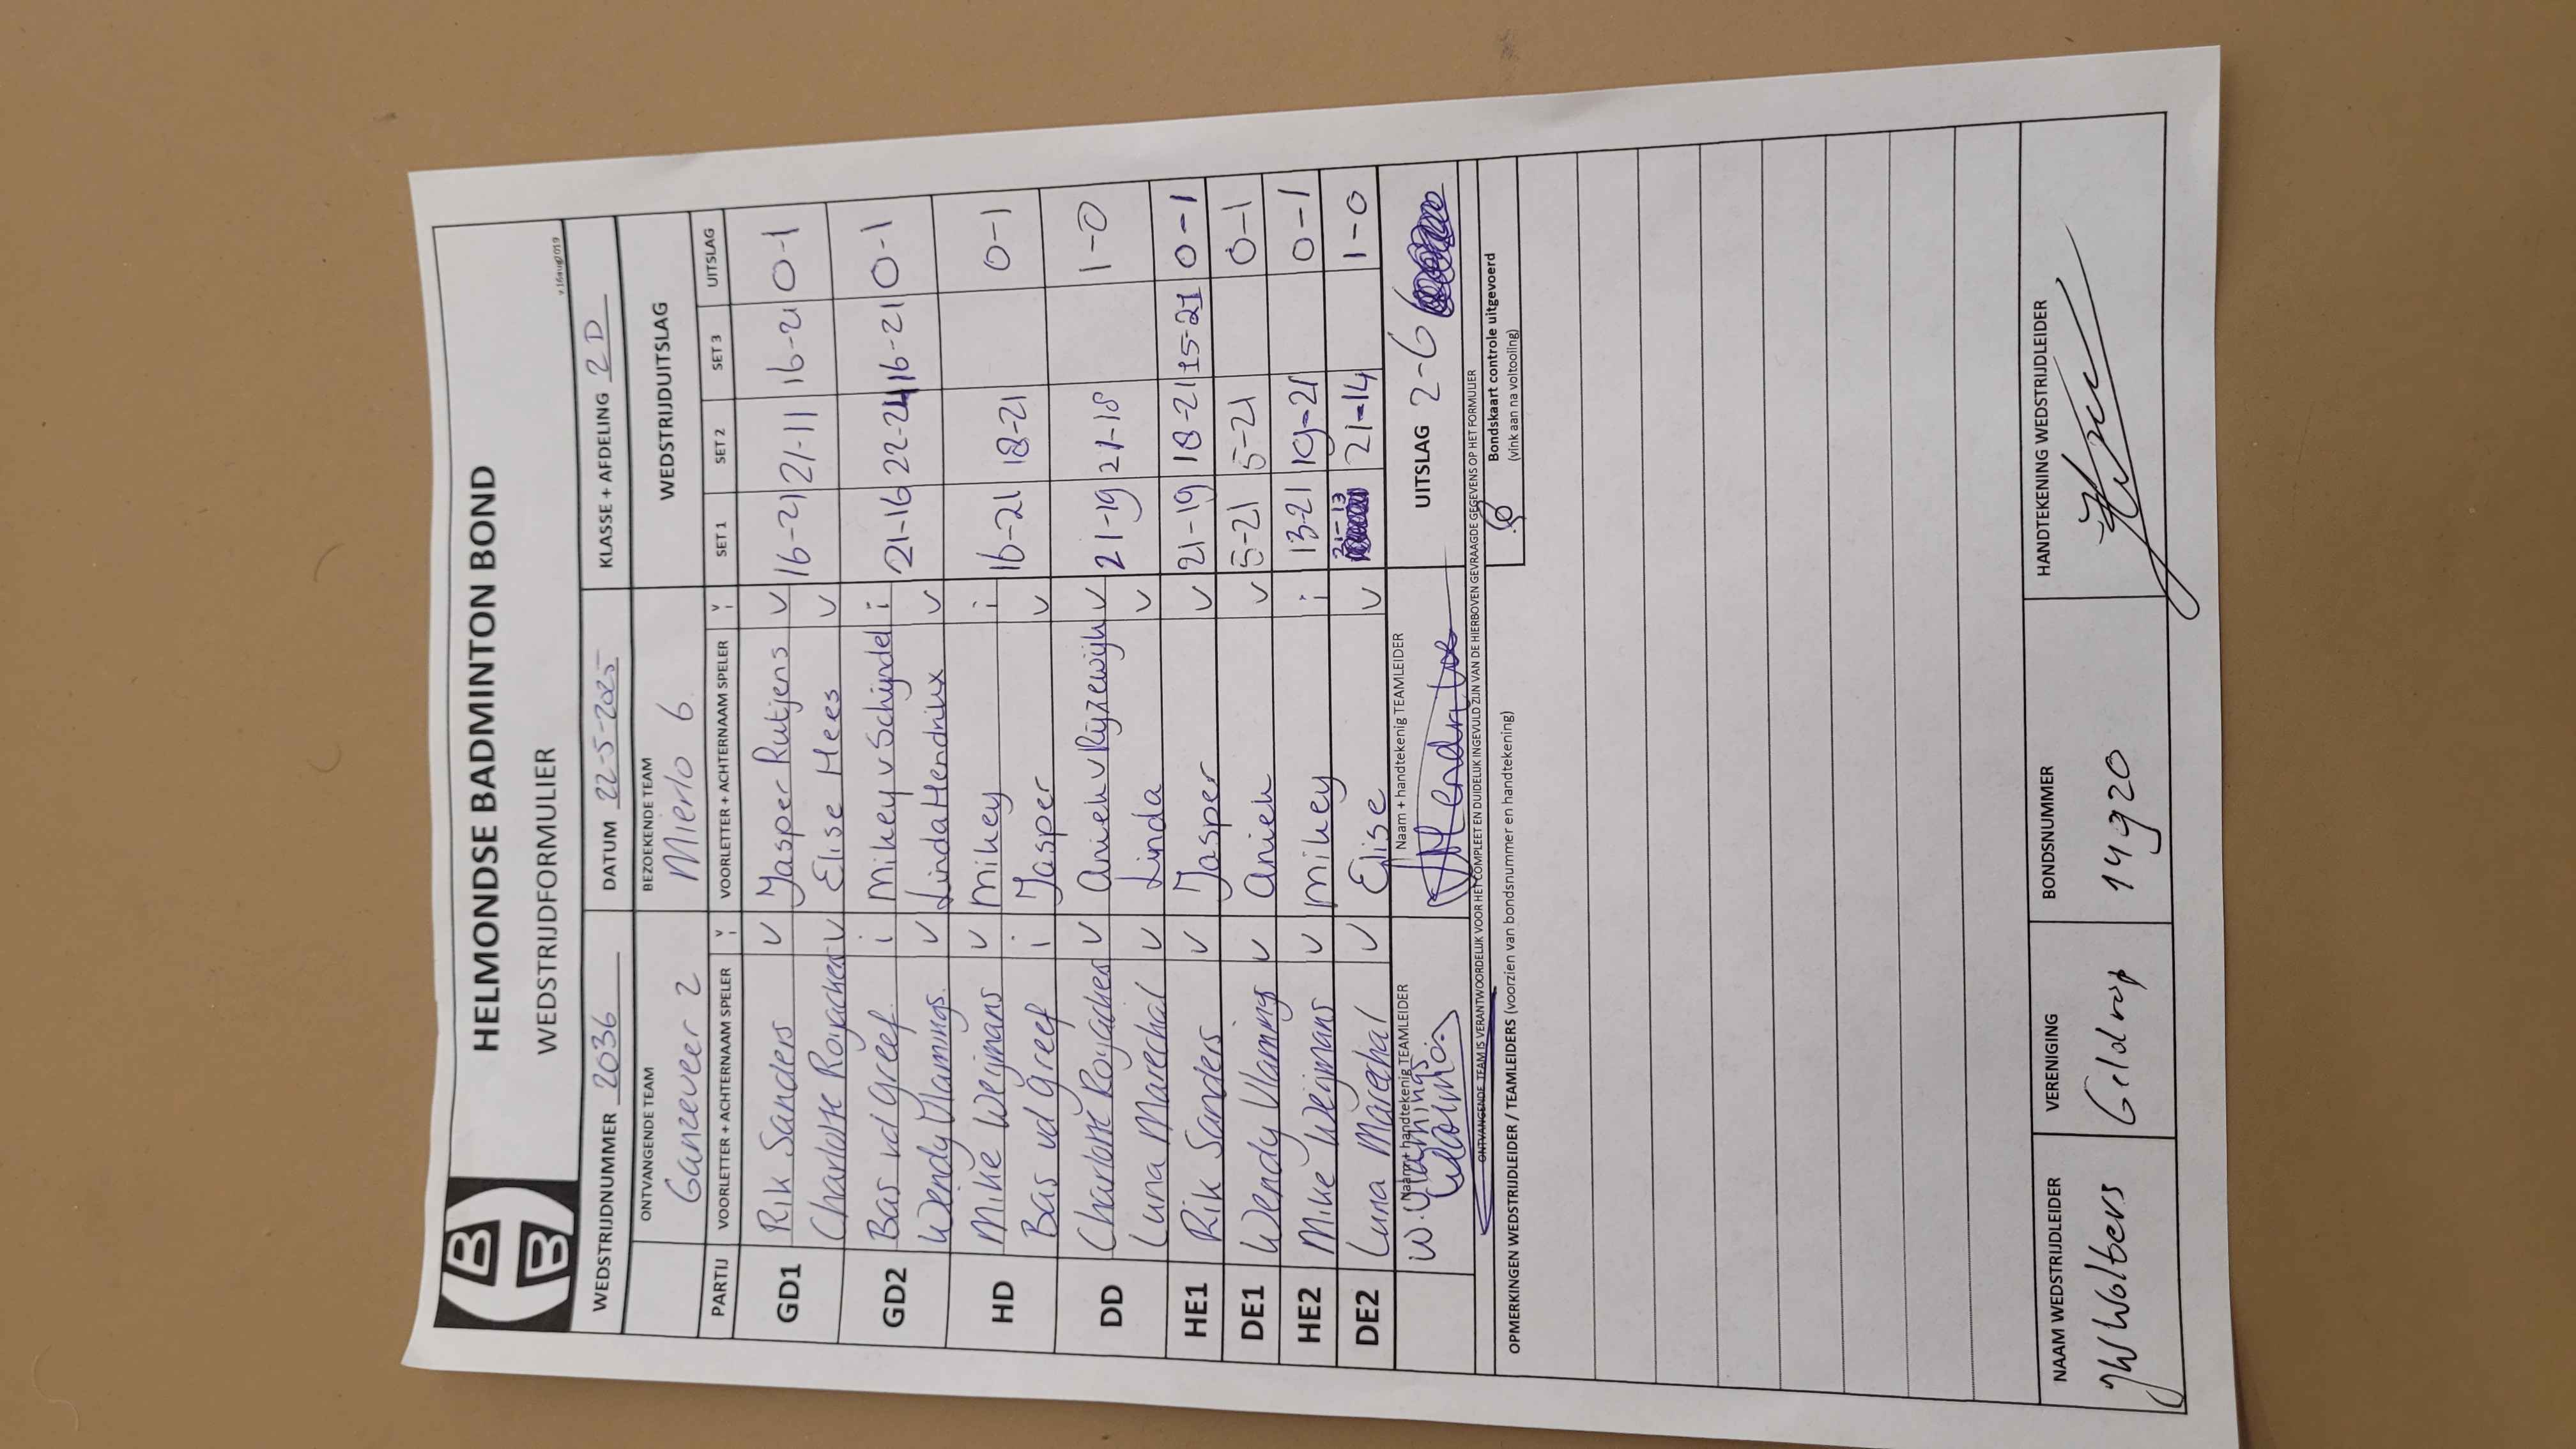 HELMONDSE BADMINTON BOND
WEDSTRIJDFORMULIER
v.16aug2019
WEDSTRIJDNUMMER 2036 DATUM 22-5-2025 KLASSE + AFDELING 2D
ONTVANGENDE TEAM BEZOEKENDE TEAM WEDSTRIJDUITSLAG
Ganzeveer 2 Mierlo 6
PARTIJ VOORLETTER + ACHTERNAAM SPELER V I VOORLETTER + ACHTERNAAM SPELER V I SET 1 SET 2 SET 3 UITSLAG
GD1 Rik Sanders v Jasper Rutjens v 16-21 21-11 16-21 0-1
Charlotte Royackers v Elise Hees v
GD2 Bas vd Greef i Mikey v Schijndel i 21-16 22-24 16-21 0-1
Wendy Vlamings v Linda Hendrikx v
HD Mike Weijmans v Mikey i 16-21 18-21 0-1
Bas vd Greef i Jasper v
DD Charlotte Royackers v Aniek v Rijzewijk v 21-19 21-18 1-0
Luna Marechal v Linda v
HE1 Rik Sanders v Jasper v 21-19 18-21 15-21 0-1
DE1 Wendy Vlamings v Aniek v 5-21 5-21 0-1
HE2 Mike Weijmans v Mikey i 13-21 19-21 0-1
DE2 Luna Marechal v Elise v 21-13 21-14 1-0
Naam + handtekenig TEAMLEIDER Naam + handtekenig TEAMLEIDER UITSLAG 2-6
W. Vlamings
ONTVANGENDE TEAM IS VERANTWOORDELIJK VOOR HET COMPLEET EN DUIDELIJK INGEVULD ZIJN VAN DE HIERBOVEN GEVRAAGDE GEGEVENS OP HET FORMULIER
Bondskaart controle uitgevoerd
(vink aan na voltooiing)
OPMERKINGEN WEDSTRIJDLEIDER / TEAMLEIDERS (voorzien van bondsnummer en handtekening)
NAAM WEDSTRIJDLEIDER VERENIGING BONDSNUMMER HANDTEKENING WEDSTRIJDLEIDER
JW Wolters Geldrop 14920